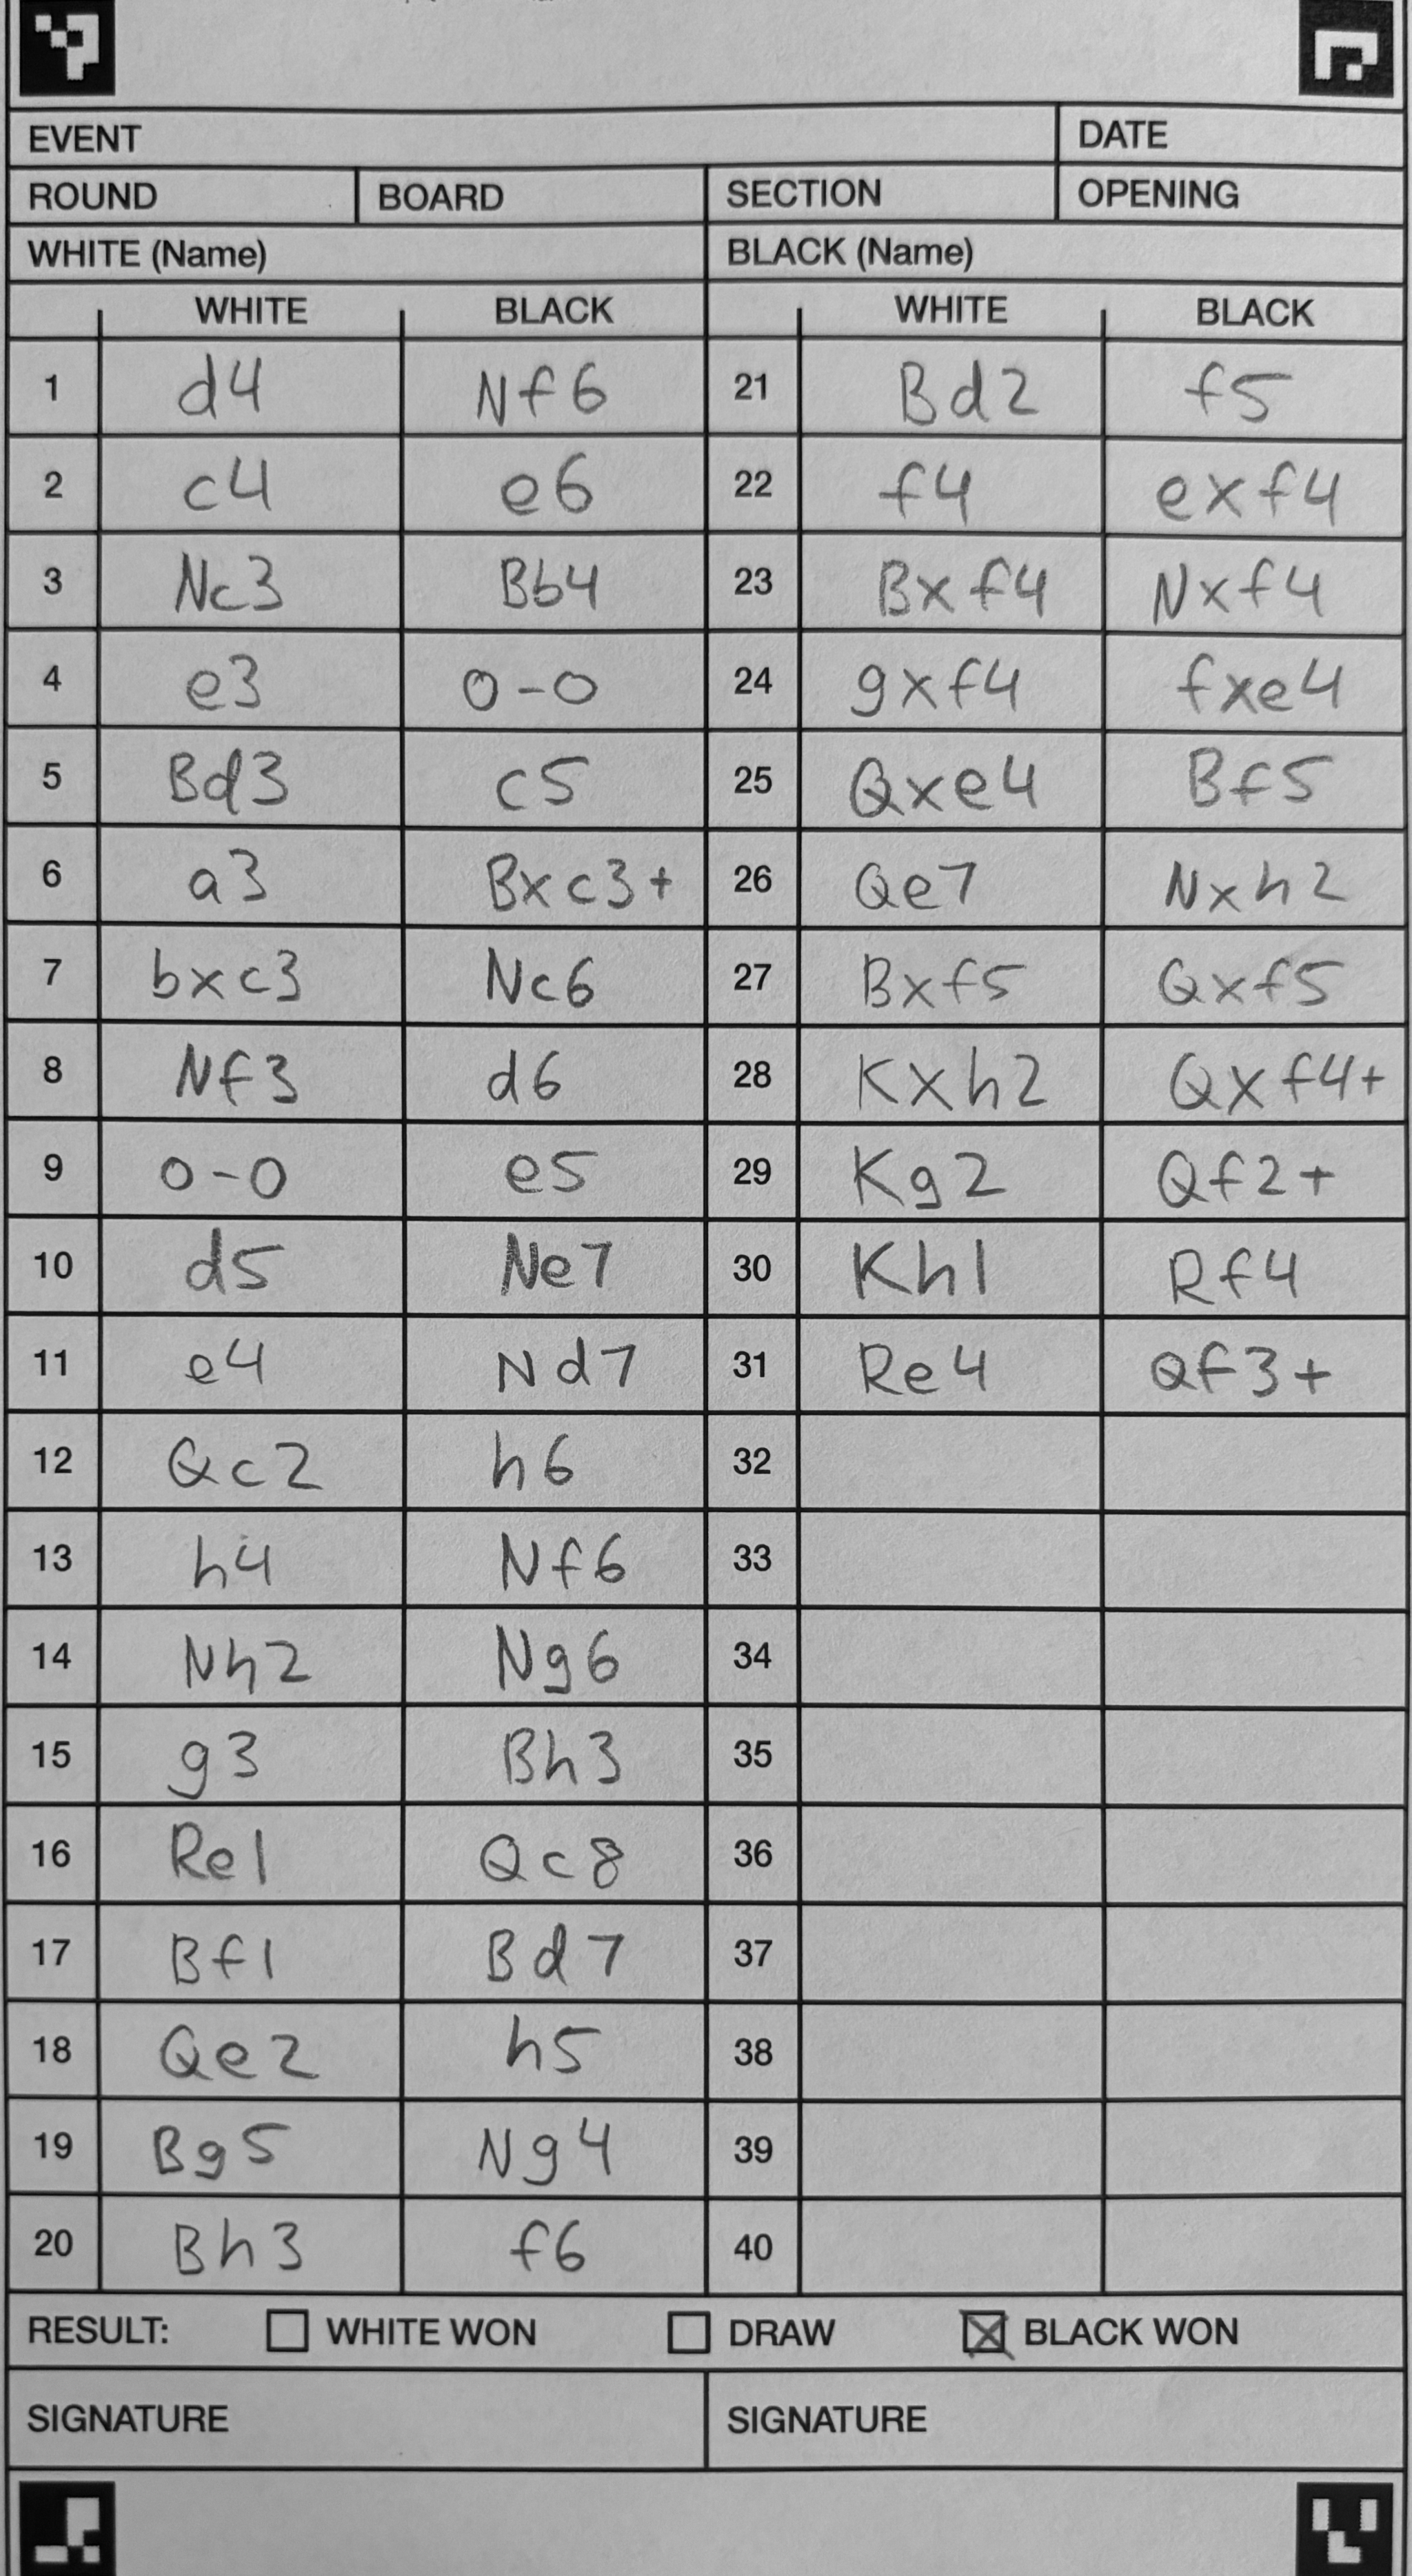 EVENT DATE
ROUND BOARD SECTION OPENING
WHITE (Name) BLACK (Name)
WHITE BLACK WHITE BLACK
1 d4 Nf6 21 Bd2 f5
2 c4 e6 22 f4 exf4
3 Nc3 Bb4 23 Bxf4 Nxf4
4 e3 0-0 24 gxf4 fxe4
5 Bd3 c5 25 Qxe4 Bf5
6 a3 Bxc3+ 26 Qe7 Nxh2
7 bxc3 Nc6 27 Bxf5 Qxf5
8 Nf3 d6 28 Kxh2 Qxf4+
9 0-0 e5 29 Kg2 Qf2+
10 d5 Ne7 30 Kh1 Rf4
11 e4 Nd7 31 Re4 Qf3+
12 Qc2 h6 32
13 h4 Nf6 33
14 Nh2 Ng6 34
15 g3 Bh3 35
16 Re1 Qc8 36
17 Bf1 Bd7 37
18 Qe2 h5 38
19 Bg5 Ng4 39
20 Bh3 f6 40
RESULT: WHITE WON DRAW BLACK WON
SIGNATURE SIGNATURE